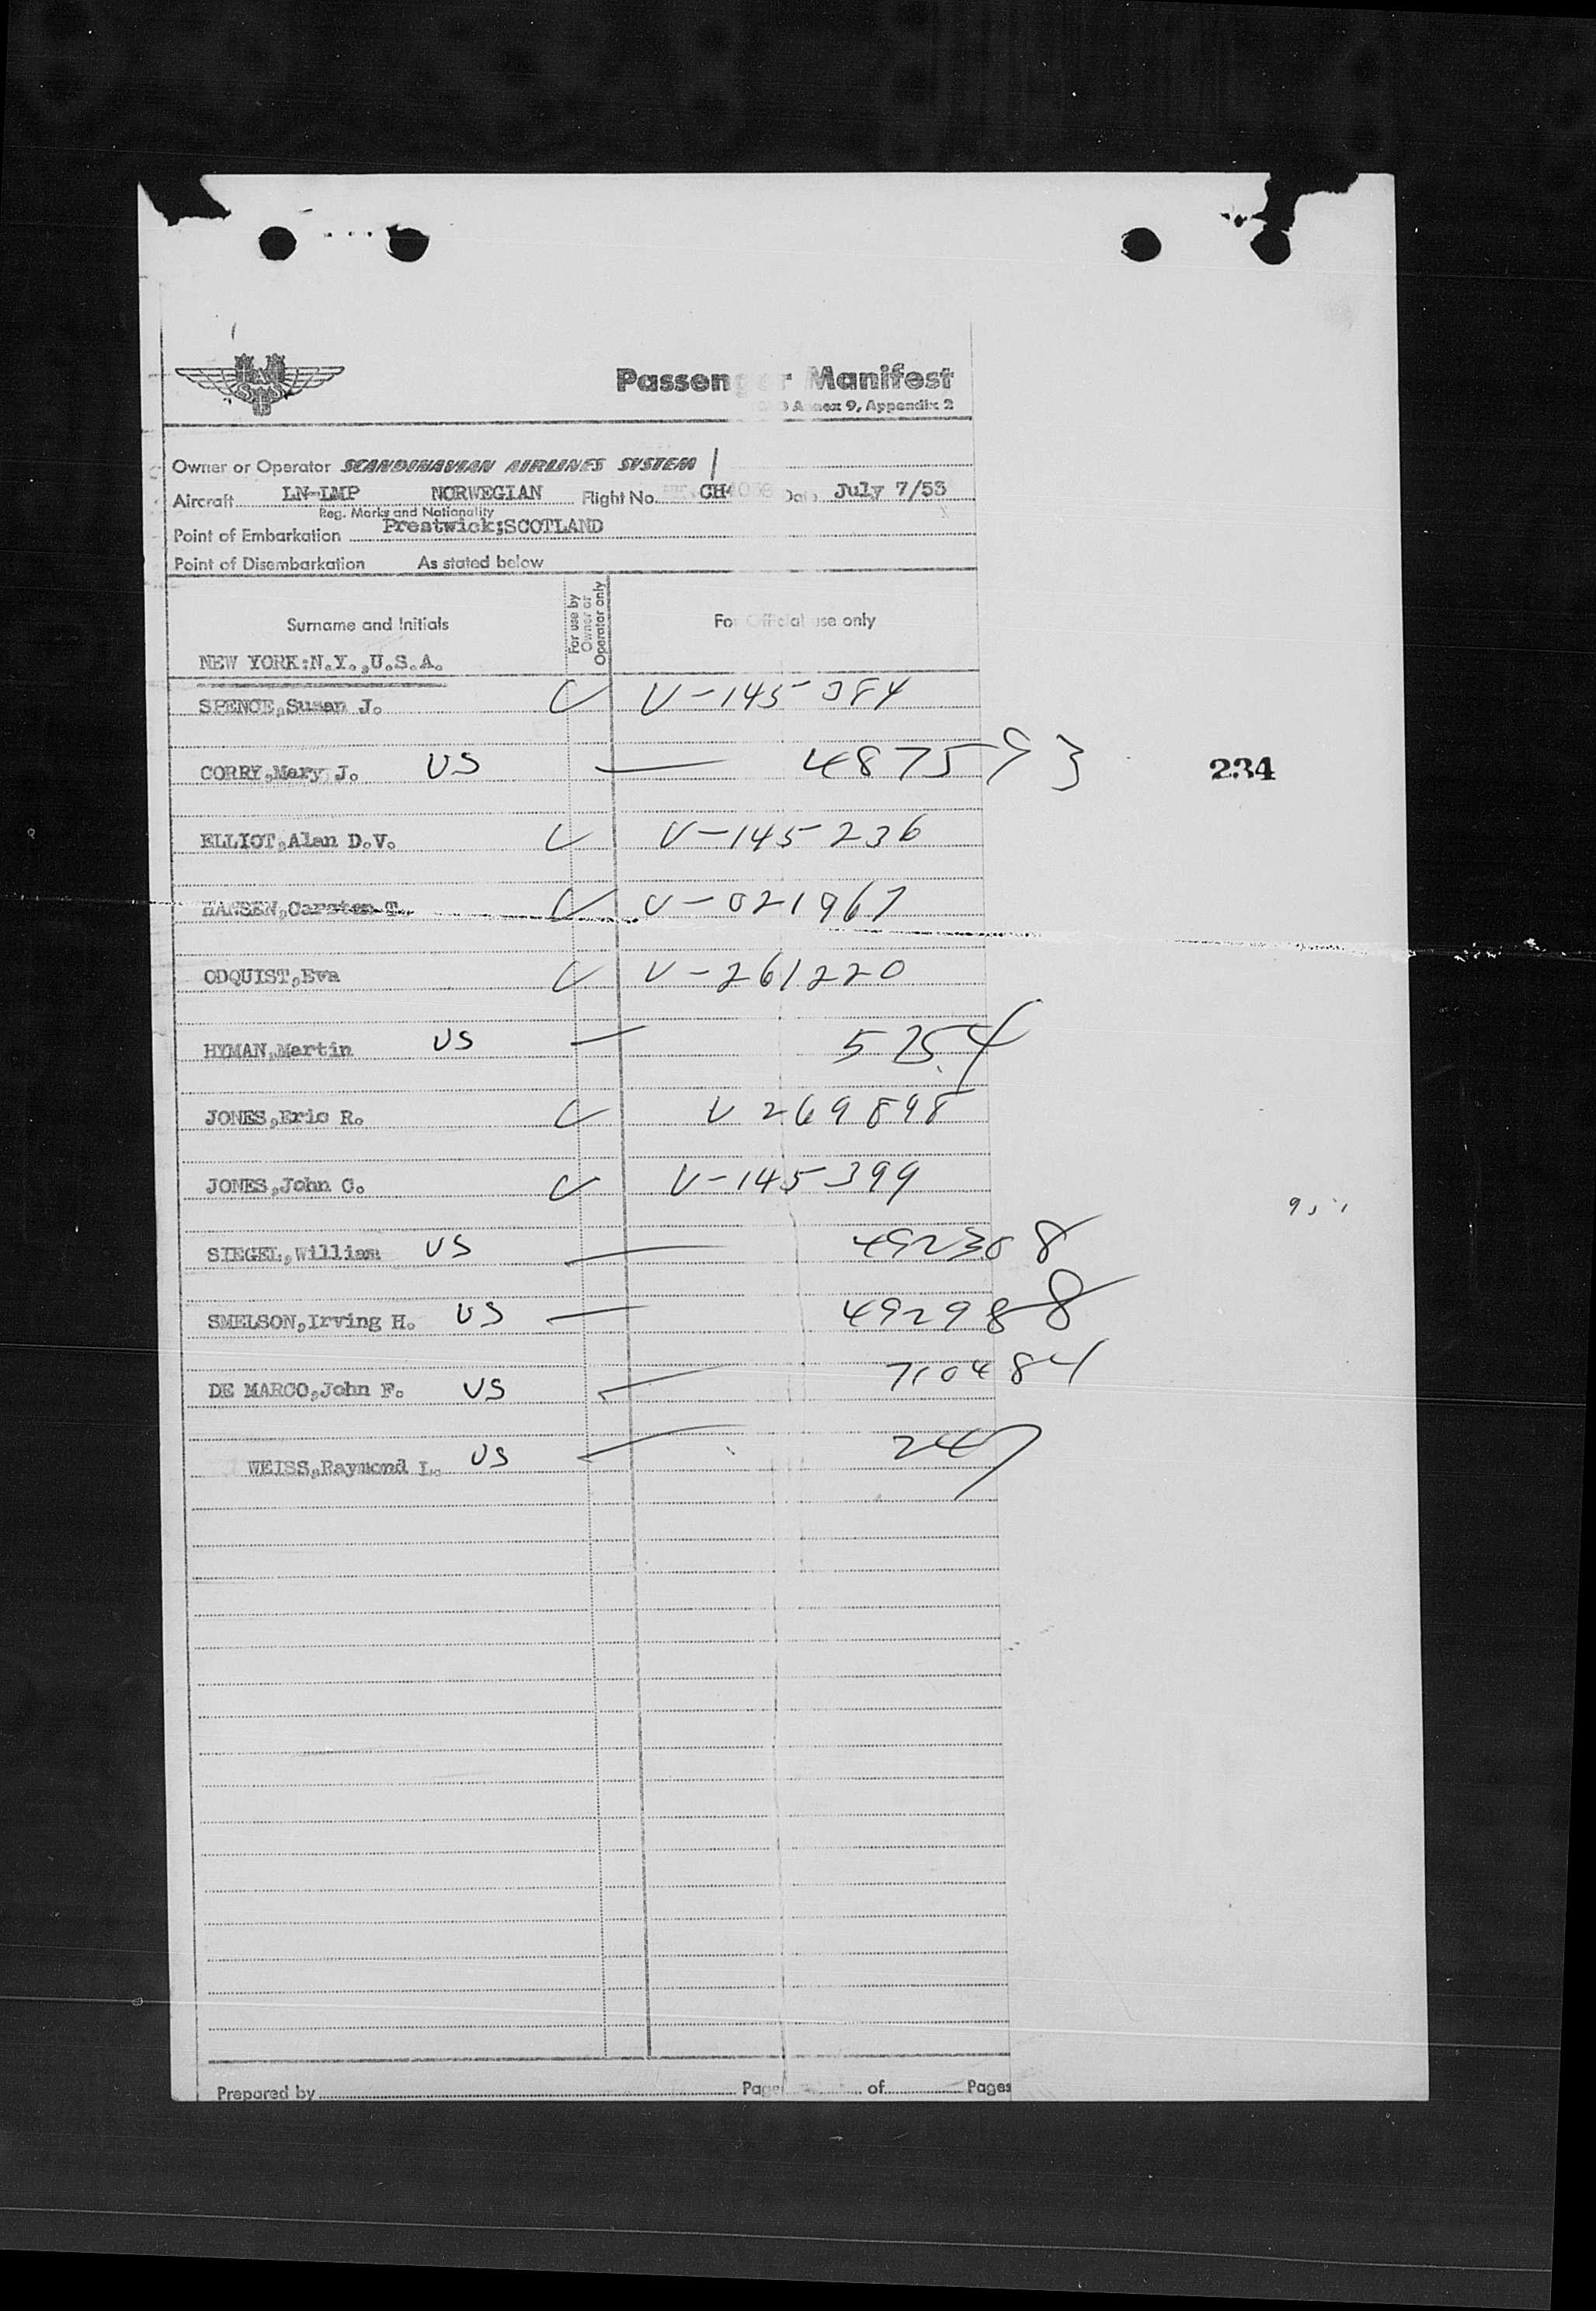 Passenger Manifest
Annex 9, Appendix 2
Owner or Operator SCANDINAVIAN AIRLINES SYSTEM
Aircraft LN-LMP NORWEGIAN Flight No. CH Date July 7/53
Reg. Marks and Nationality
Point of Embarkation Prestwick;SCOTLAND
Point of Disembarkation As stated below
Surname and Initials
For use by Owner or Operator only
For Official use only
NEW YORK:N.Y.,U.S.A.
SPENCE,Susan J. V-145384
CORRY,Mary J. US 487593
234
ELLIOT,Alan D.V. V-145236
HANSEN,Carsten T. V-021967
ODQUIST,Eva V-261220
HYMAN,Martin US 5254
JONES,Eric R. V 269898
JONES,John C. V-145399
SIEGEL,William US 492308
SMELSON,Irving H. US 492988
DE MARCO,John F. US 710484
WEISS,Raymond L. US 247
Prepared by Page of Pages